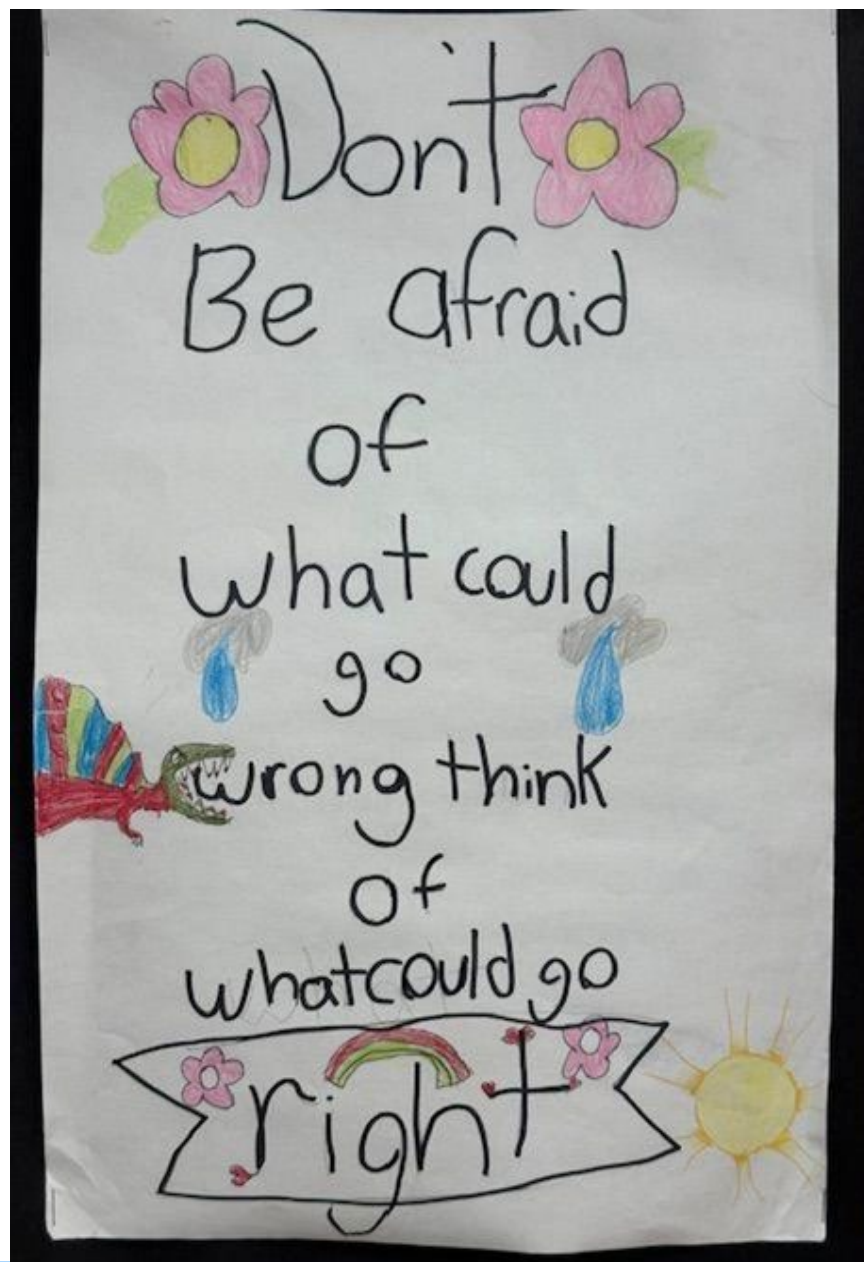 Don't
Be afraid
of
what could
go
wrong think
of
what could go
right